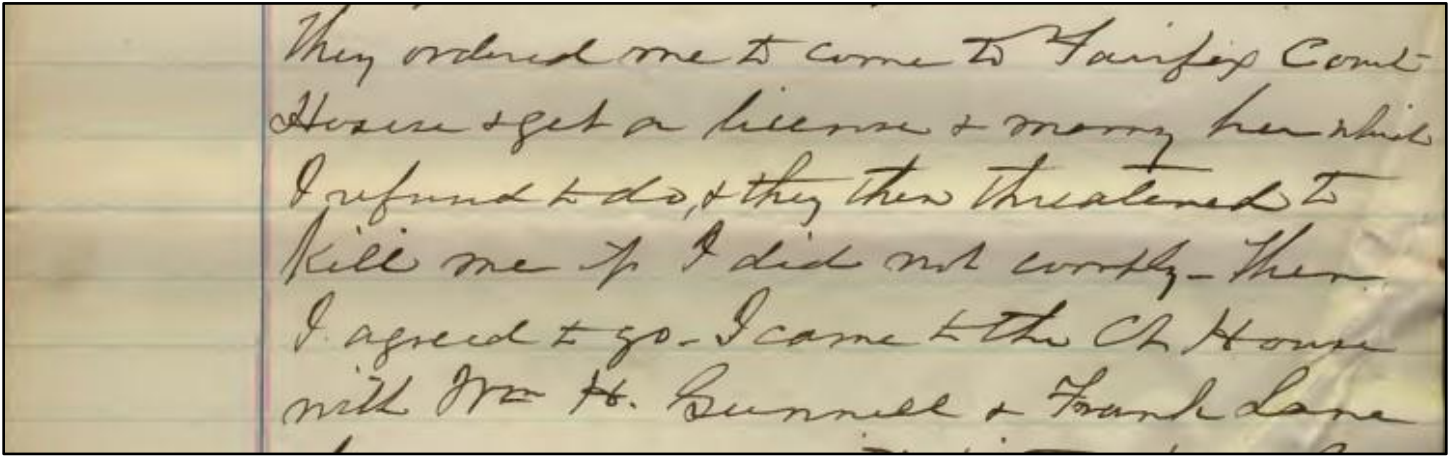 They ordered me to come to Fairfax Court
House & get a license & marry her which
I refused to do, & they then threatened to
kill me if I did not comply - Then
I agreed to go - I came to the Ct House
with Wm H. Gunnell & Frank Lane